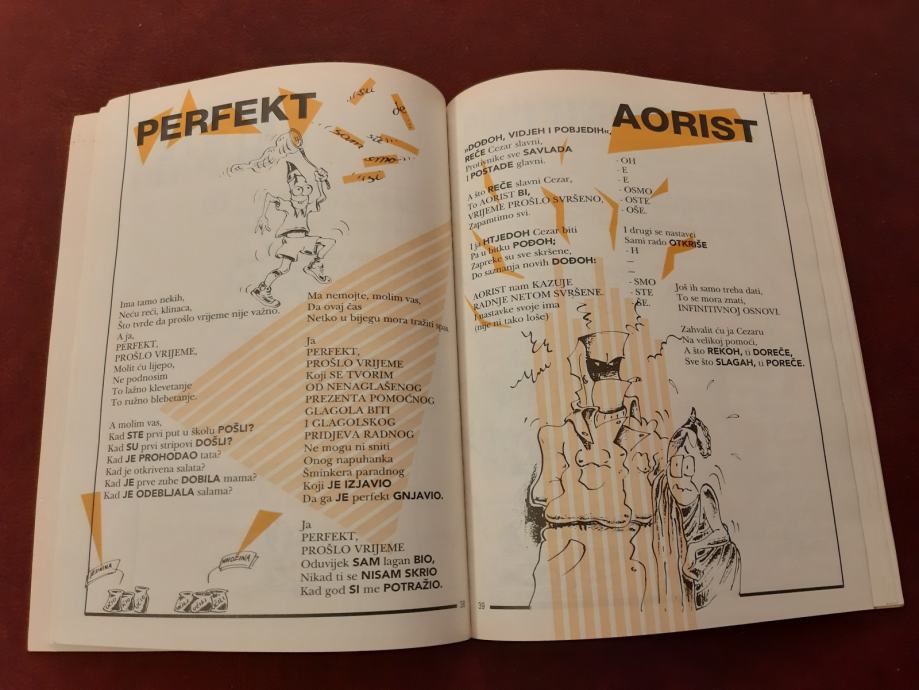 PERFEKT
su
je
sam
ste
smo
si
Ima tamo nekih,
Neću reći, klinaca,
Što tvrde da prošlo vrijeme nije važno.
A ja,
PERFEKT,
PROŠLO VRIJEME,
Molit ću lijepo,
Ne podnosim
To lažno klevetanje
To ružno blebetanje.
A molim vas,
Kad STE prvi put u školu POŠLI?
Kad SU prvi stripovi DOŠLI?
Kad JE PROHODAO tata?
Kad je otkrivena salata?
Kad JE prve zube DOBILA mama?
Kad JE ODEBLJALA salama?
MNOŽINA
Ma nemojte, molim vas,
Da ovaj čas
Netko u bijegu mora tražiti spas.
Ja
PERFEKT,
PROŠLO VRIJEME
Koji SE TVORIM
OD NENAGLAŠENOG
PREZENTA POMOĆNOG
GLAGOLA BITI
I GLAGOLSKOG
PRIDJEVA RADNOG
Ne mogu ni sniti
Onog napuhanka
Šminkera paradnog
Koji JE IZJAVIO
Da ga JE perfekt GNJAVIO.
Ja
PERFEKT,
PROŠLO VRIJEME
Oduvijek SAM lagan BIO,
Nikad ti se NISAM SKRIO
Kad god SI me POTRAŽIO.
38
AORIST
»DOĐOH, VIDJEH I POBJEDIH«,
REČE Cezar slavni,
Protivnike sve SAVLADA
I POSTADE glavni.
A što REČE slavni Cezar,
To AORIST BI,
VRIJEME PROŠLO SVRŠENO,
Zapamtimo svi.
I ja HTJEDOH Cezar biti
Pa u bitku POĐOH;
Zapreke su sve skršene,
Do saznanja novih DOĐOH:
AORIST nam KAZUJE
RADNJE NETOM SVRŠENE.
I nastavke svoje ima
(nije ni tako loše)
- OH
- E
- E
- OSMO
- OSTE
- OŠE.
I drugi se nastavci
Sami rado OTKRIŠE
- H
—
—
- SMO
- STE
- ŠE.
Još ih samo treba dati,
To se mora znati,
INFINITIVNOJ OSNOVI.
Zahvalit ću ja Cezaru
Na velikoj pomoći,
A što REKOH, u DOREČE,
Sve što SLAGAH, u POREČE.
39